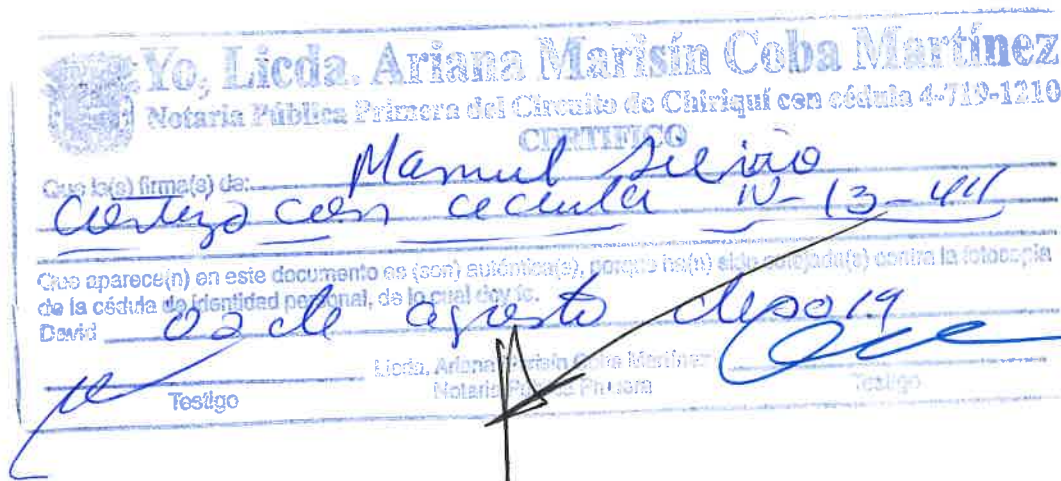 Yo, Licda. Ariana Marisín Coba Martínez
Notaria Pública Primera del Circuito de Chiriquí con cédula 4-719-1210
CERTIFICO
Que la(s) firma(s) de: Manuel Silvio
Cortizo con cedula N-13-411
Que aparece(n) en este documento es (son) auténtica(s), porque ha(n) sido cotejada(s) contra la fotocopia
de la cédula de identidad personal, de lo cual doy fe.
David 02 de agosto de 2019
Licda. Ariana Marisín Coba Martínez
Testigo Notaria Pública Primera Testigo